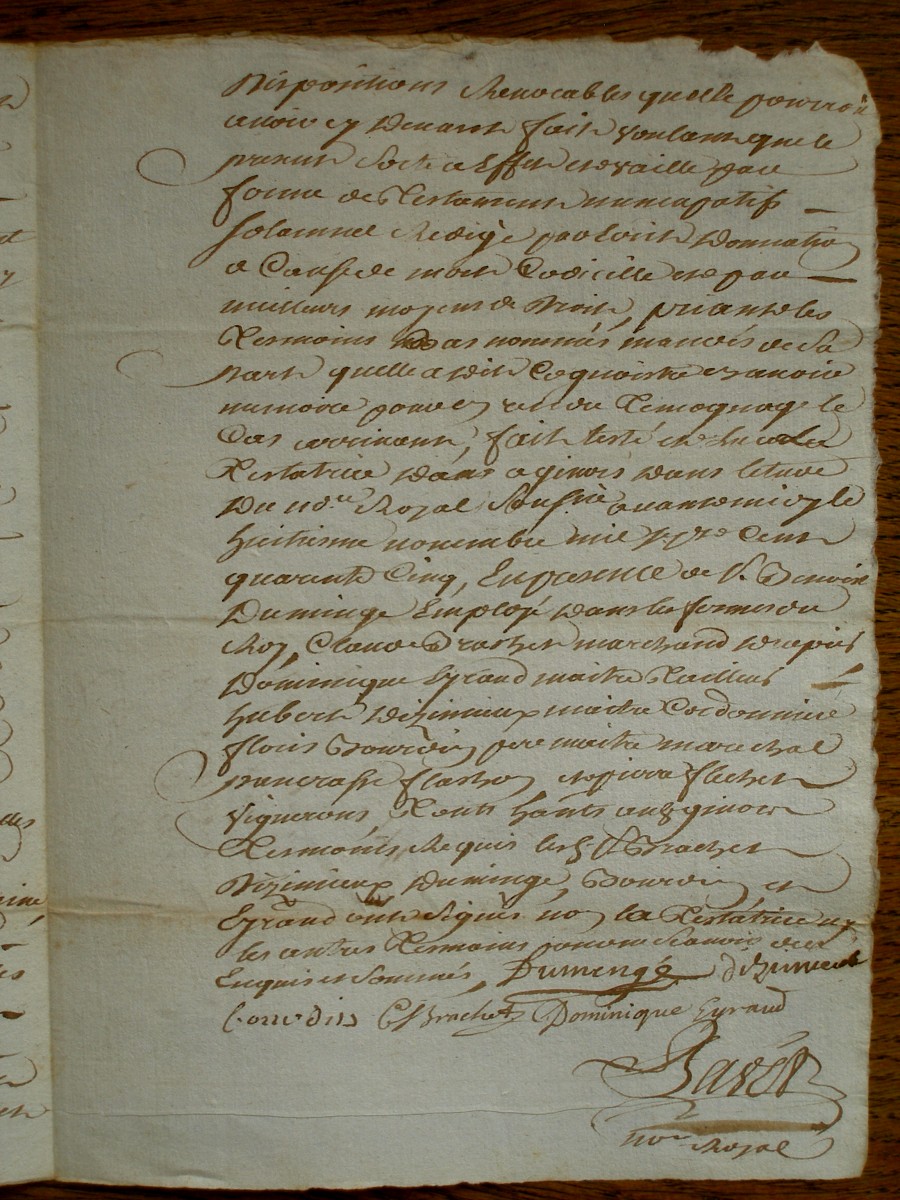 Dispositions Revocables quelle pourroit
avoir cy devant fait voulant que le
present sorte a Effet et vaille par
forme de Testament nuncupatif
solamnel Redigé par écrit Donnation
a Cause de mort Codicille et par
meilleurs moyens de Droit, priant les
Tesmoins bas nommés mandés de sa
part quelle a dit Cognoistre d'avoir
memoire pour en rendre Temognage le
Cas avenant, fait leté et
Testatrice dans a ginois dans letude
Du no.re Royal avant midy le
huitieme novembre mil sept Cent
quarente Cinq, En presence de S. Benoist
Duminge Employé dans les fermes du
Roy Claude Brachet marchand
Dominique Eyraud maitre Tailleur
hubert Dizimieux maitre Cordonnier
floris Bourdin pere maitre marechal
pancrasse flachon et pierre flechet
vignerons, Touts hants audt ginois
Tesmoins Requis les S. Brachet
Dizimieux Duminge, Bourdin et
Eyraud ont signés non la Testatrice ny
les autres Tesmoins pour ne sçavoir de ce
Enquis et sommés, Dumengé dizimieux
bourdin C Brachet Dominique Eyraud
no.re Royal